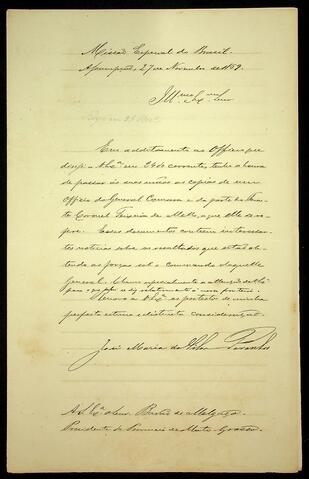 Missão Especial do Brasil.
Assumpção, 27 de Novembro de 1869.
Illmo. Exmo. Senr.
Em additamento ao Officio que
dirigi a V. Exa. em 24 do corrente, tenho a honra
de passar ás suas mãos as copias de um
Officio do General Camara e da parte do Tenen-
te Coronel Teixeira de Mello, a que elle se re-
fere. Esses documentos contêm interessan-
tes noticias sobre os resultados que está ob-
tendo as forças sob o Commando daquelle
General. Chamo especialmente a attenção de V. Exa.
para o que diz relativamente á nossa fronteira.
Renovo a V. Exa. os protestos de minha
perfeita estima e distincta consideração.
José Maria da Silva Paranhos
A S. Exa. o Senr. Barão de Melgaço.
Presidente da Provincia de Matto-Grosso.